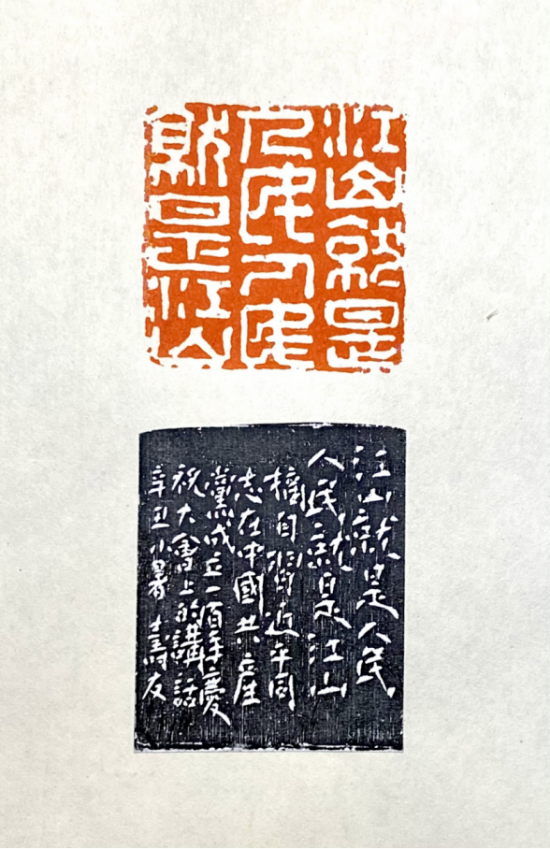 江山就是
人民人民
就是江山
江山就是人民
人民就是江山
摘自習近平同
志在中國共產
黨成立一百年慶
祝大會上的講話
辛丑小暑壽友